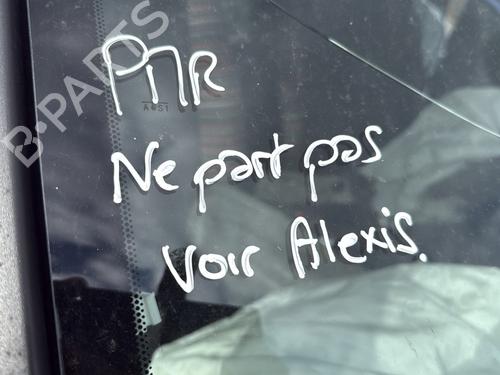 B-PARTS
PMR
Ne part pas
voir Alexis.